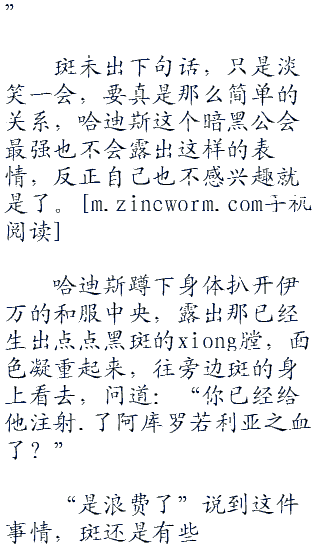 ”
斑未出下句话，只是淡
笑一会，要真是那么简单的
关系，哈迪斯这个暗黑公会
最强也不会露出这样的表
情，反正自己也不感兴趣就
是了。[m.zincworm.com手机
阅读]
哈迪斯蹲下身体扒开伊
万的和服中央，露出那已经
生出点点黑斑的xiong膛，面
色凝重起来，往旁边斑的身
上看去，问道：“你已经给
他注射.了阿库罗若利亚之血
了？”
“是浪费了”说到这件
事情，斑还是有些